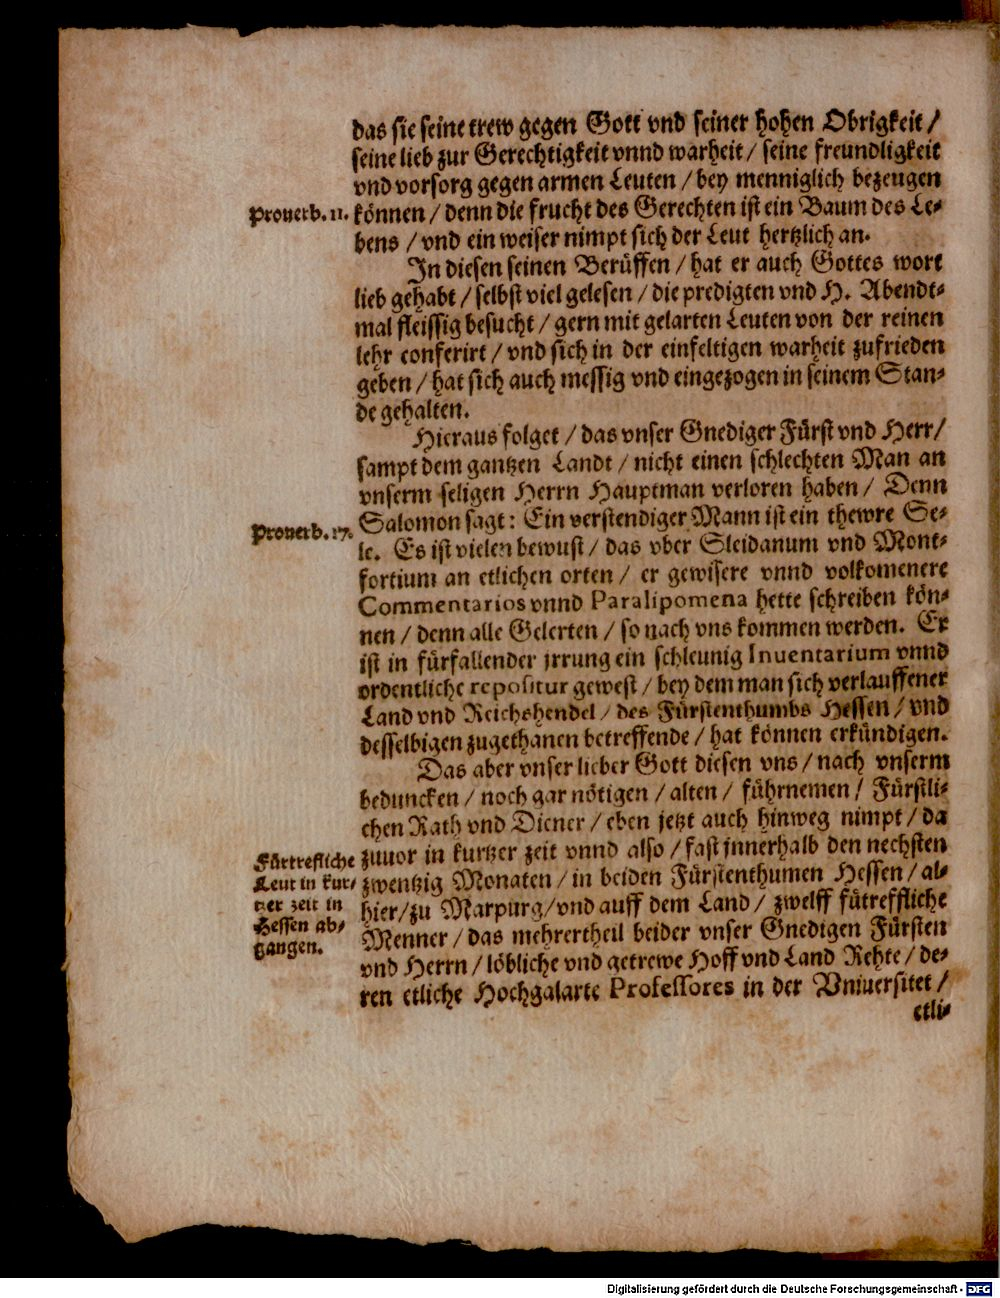 das sie seine trew gegen Gott vnd seiner hohen Obrigkeit /
seine lieb zur Gerechtigkeit vnnd warheit / seine freundligkeit
vnd vorsorg gegen armen Leuten / bey menniglich bezeugen
Prouerb. 11. können / denn die frucht des Gerechten ist ein Baum des Le-
bens / vnd ein weiser nimpt sich der Leut hertzlich an.
In diesen seinen Berüffen / hat er auch Gottes wort
lieb gehabt / selbst viel gelesen / die predigten vnd H. Abendt-
mal fleissig besucht / gern mit gelarten Leuten von der reinen
lehr conferirt / vnd sich in der einfeltigen warheit zufrieden
geben / hat sich auch messig vnd eingezogen in seinem Stan-
de gehalten.
Hieraus folget / das vnser Gnediger Fürst vnd Herr /
sampt dem gantzen Landt / nicht einen schlechten Man an
vnserm seligen Herrn Hauptman verloren haben / Denn
Prouerb. 17. Salomon sagt : Ein verstendiger Mann ist ein thewre See-
le. Es ist vielen bewust / das vber Sleidanum vnd Mont-
fortium an etlichen orten / er gewisere vnnd volkomenere
Commentarios vnnd Paralipomena hette schreiben kön-
nen / denn alle Gelerten / so nach vns kommen werden. Er
ist in fürfallender jrrung ein schleunig Inuentarium vnnd
ordentliche repositur gewest / bey dem man sich verlauffener
Land vnd Reichshendel / des Fürstenthumbs Hessen / vnd
desselbigen zugethanen betreffende / hat können erkündigen.
Das aber vnser lieber Gott diesen vns / nach vnserm
beduncken / noch gar nötigen / alten / führnemen / Fürstli-
chen Rath vnd Diener / eben jetzt auch hinweg nimpt / da
zuuor in kurtzer zeit vnnd also / fast jnnerhalb den nechsten
zwentzig Monaten / in beiden Fürstenthumen Hessen / al-
hier / zu Marpurg / vnd auff dem Land / zwelff fütreffliche
Menner / das mehrertheil beider vnser Gnedigen Fürsten
vnd Herrn / löbliche vnd getrewe Hoff vnd Land Rehte / de-
ren etliche Hochgalarte Professores in der Vniuersitet /
etli-
Fürtrefliche
Leut in kur-
tzer zeit in
Hessen ab-
gangen.
Digitalisierung gefördert durch die Deutsche Forschungsgemeinschaft - DFG